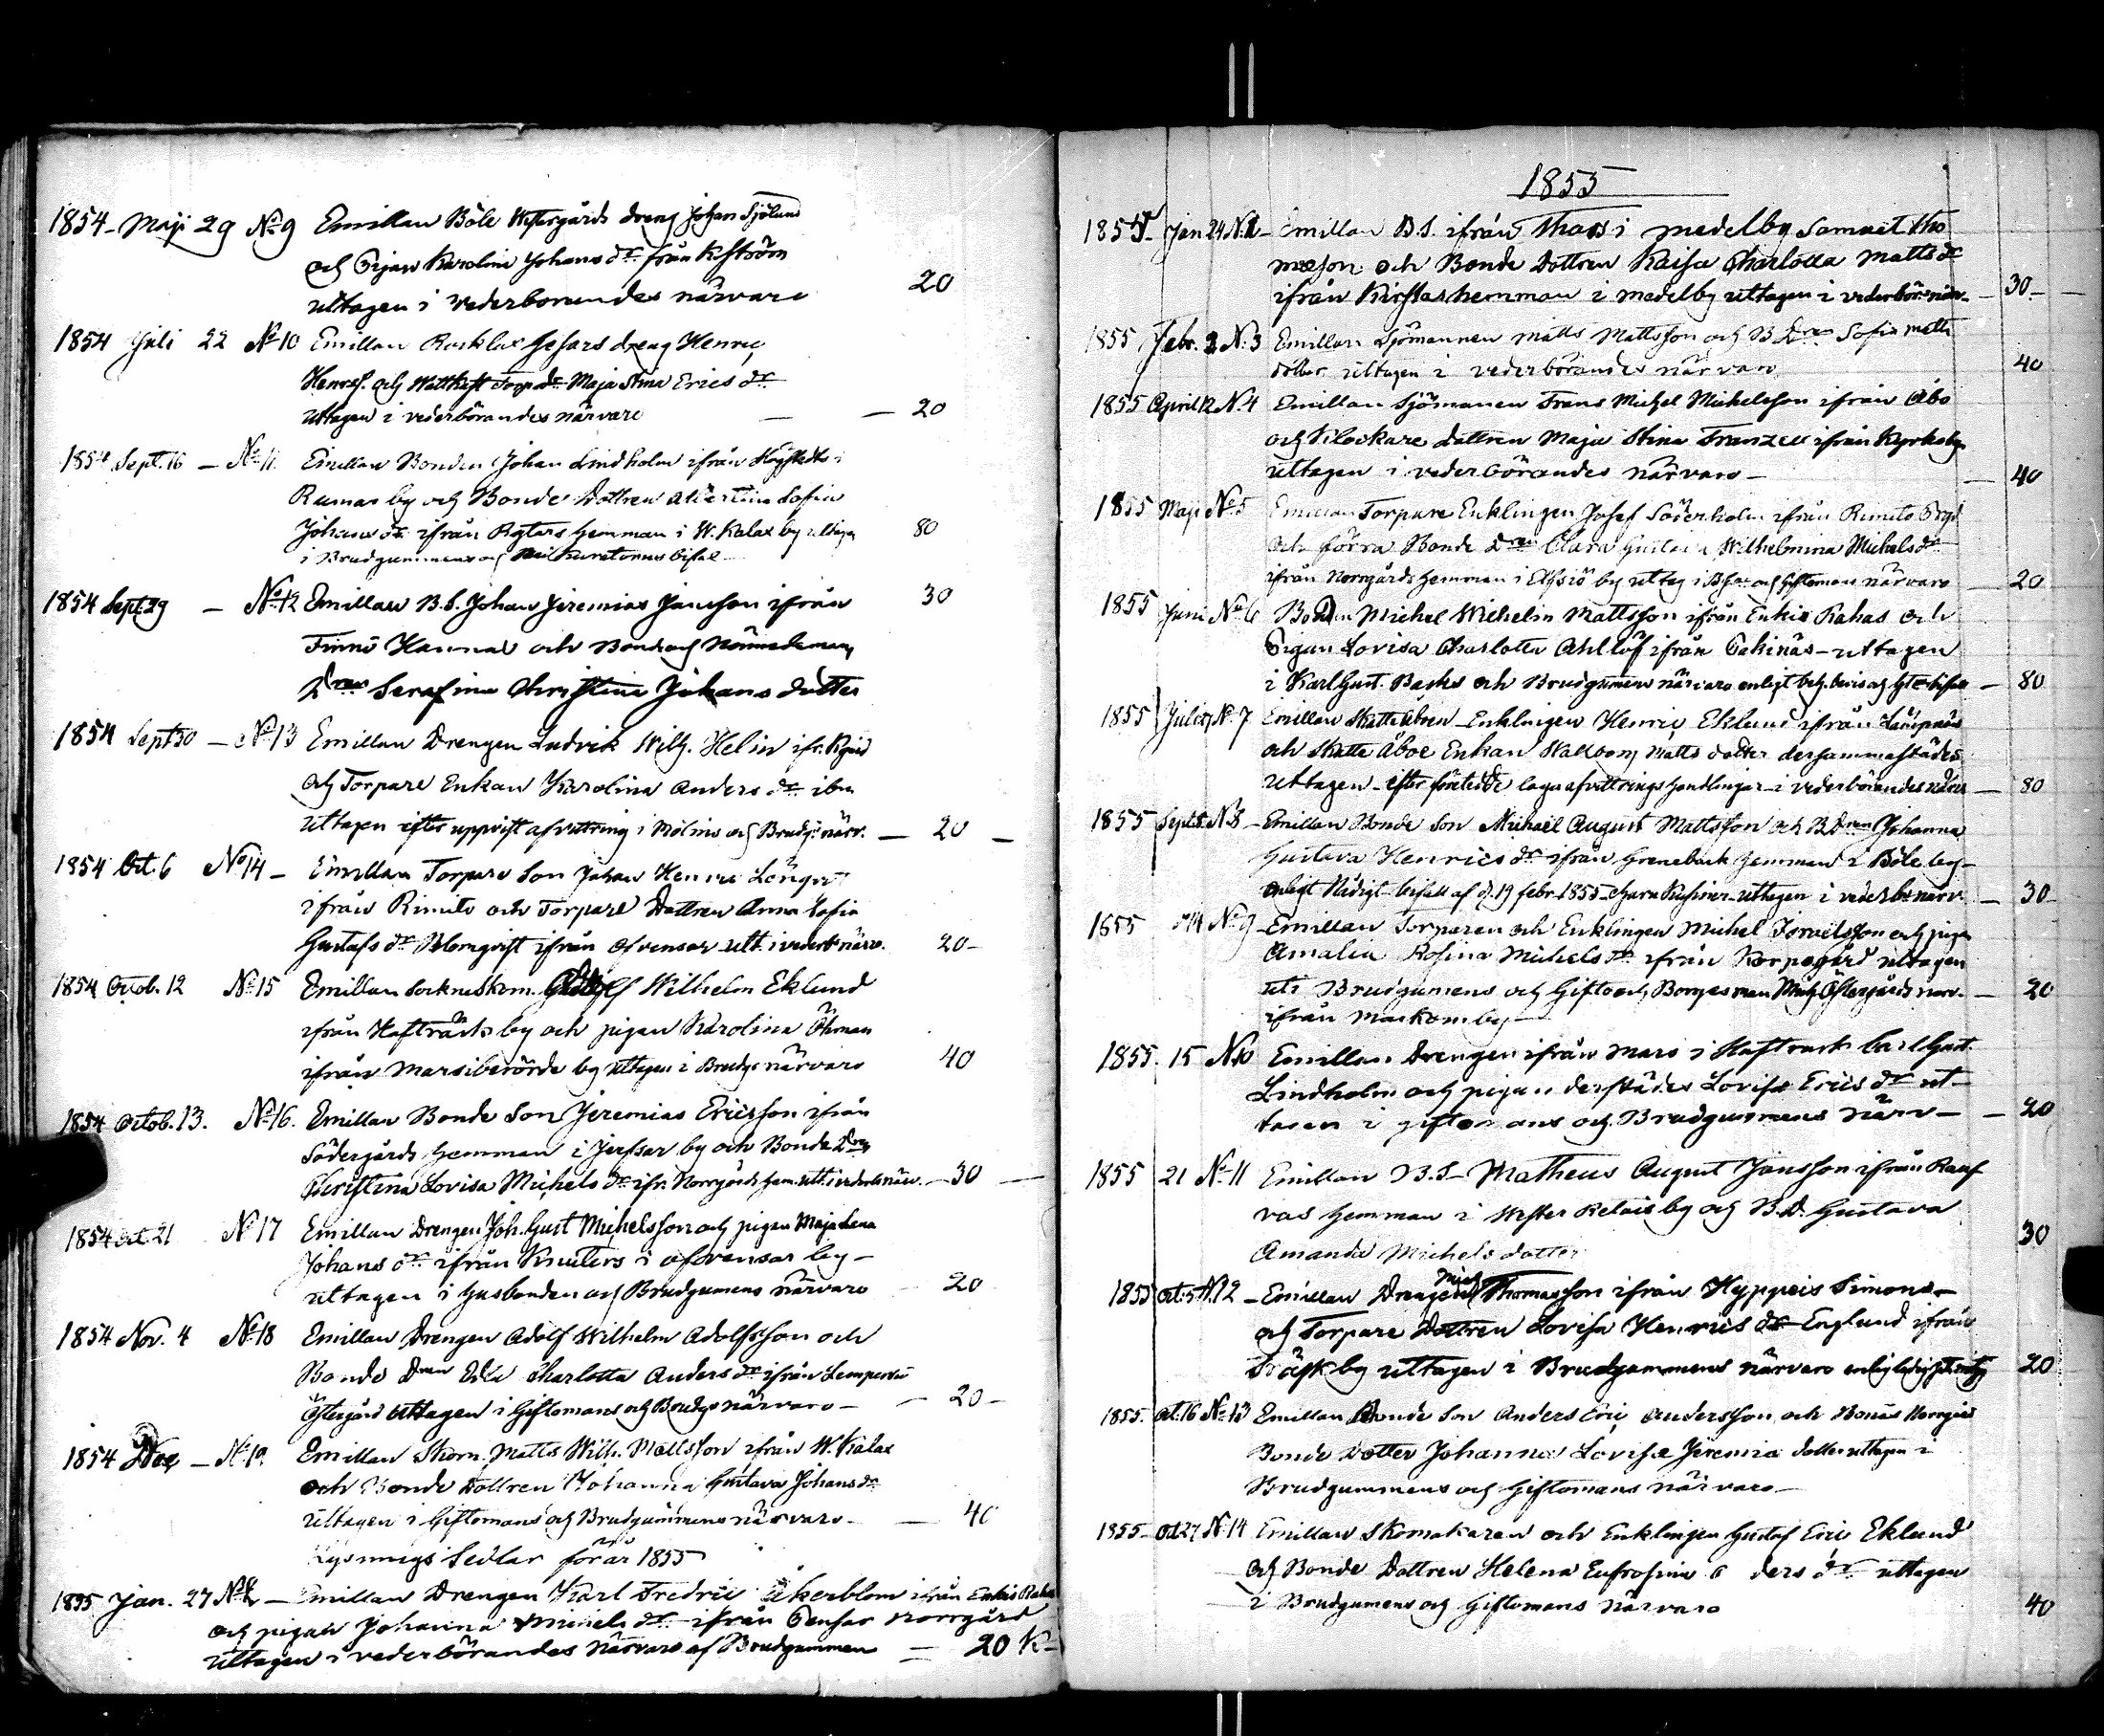 1854 Maji 29 No 9 Emillan Böle Westergårds dreng Johan Sjölund
och Pigan Karolina Johans dr från
uttagen i vederborandes närvaro 20
1854 Juli 22 No 10 Emillan Rosklax dreng Henric
Henrcs. och Torp dr Maja Stina Erics dr
uttagen i vederbörandes närvaro — 20
1854 Sept. 16 — No 11 Emillan Bonden Johan Lindholm ifrån i
Ramas by och Bonde Dottren Albertina Sofia
Johans dr ifrån hemman i W. Kalax by uttagen 80
i Brudgummens och
1854 Sept 29 — No 12 Emillan B.S. Johan Jeremias Jansson ifrån 30
Finnö Hannas och Bonde och Nämndemans
Dren Serafina Christina Johans dotter
1854 Sept 30 — No 13 Emillan Drengen Ludvik Wilh. Helin ifr.
och Torpare Enkan Karolina Anders dr ibm
uttagen efter uppvist afvittring i och Brudg. närv. — 20 —
1854 Oct. 6 No 14 — Emillan Torpare Son Johan Henric Lönqvist
ifrån Rimito och Torpare Dottren Anna Sofia
Gustafs dr Blomqvist ifrån Ofvensor utt. i vederb närv. 20 —
1854 Octob. 12 No 15 Emillan Sockneskom. Wilhelm Eklund
ifrån Haftträsk by och pigan Karolina Öhman
ifrån by uttagen i Brudgs närvaro 40
1854 Octob. 13. No 16. Emillan Bonde Son Jeremias Ericsson ifrån
Södergårds hemman i by och Bonde Dren
Christina Lovisa Michels dr ifr. Norrgårds hem. utt. i vederb närv. — 30 —
1854 Oct. 21 No 17 Emillan Drengen Joh. Gust Michelsson och pigan Maja Lena
Johans dr ifrån Knuters i Ofvensor by —
uttagen i husbonden och Brudgumens närvaro — 20
1854 Nov. 4 No 18 Emillan Drengen Adolf Wilhelm Adolfsson och
Bonde Dren Charlotta Anders dr ifrån
Östergård uttagen i Giftomans och Brudgs närvaro — — 20 —
1854 — No 19 Emillan Skom. Matts Wilh. Mattsson ifrån W. Kalax
och Bonde Dottren Johanna Gustava Johans dr
uttagen i Giftomans och Brudgummens närvaro — — 40
Lysnings Sedlar för år 1855
1855 Jan. 27 No — Emillan Drengen Karl Fredric Åkerblom ifrån Enkis Rahas
och pigan Johanna Michels dr ifrån Pensar Norrgård
uttagen i vederbörandes närvaro af Brudgummen — 20 K
1855
1855 — Jan 24 N. — Emillan B.S. ifrån Thors i Medelby Samuel Tho
masson och Bonde Dottren Kaisa Charlotta Matts dr
ifrån hemman i Medelby uttagen i vederbör närv — 30 —
1855 Febr. N. 3 Emillan Sjömannen Matts Mattsson och B Dren Sofia Matts
dotter uttagen i vederbörandes närvaro 40
1855 April 12 N. 4 Emillan Sjömanen Frans Michel Michelsson ifrån Åbo
och Klockare dottren Maja Stina Franzell ifrån Kyrkoby
uttagen i vederbörandes närvaro — 40
1855 Maji No 5 Emillan Torpare Enklingen Josef Söderholm ifrån Rimito
och förra Bonde Dren Clara Gustava Wilhelmina Michels dr
ifrån Norrgårds hemman i by uttag i och Giftoman närvaro — 20
1855 Juni No 6 Michel Wilhelm Mattsson ifrån Enkis Rahas och
Pigan Lovisa Charlotta Ahllöf ifrån Pakinäs — uttagen
i Karl Gust. Backs och Brudgumens närvaro enligt — 80
1855 Juli No 7 Emillan Skatte Åboen Enklingen Henric Eklund ifrån
och Skatte Åboe Enkan Walborg Matts dotter dersammastädes
uttagen — efter företedde laga afvittrings handlingar — i vederbörandes närv — 80
1855 Sept. N. 8 — Emillan Bonde Son Michael August Mattsson och B. Dren Johanna
Gustava Henrics dr ifrån Greneback hemman i Böle by —
enligt Nådigt bifall af d. 19 febr 1855 uttagen i vederb närv. — 30 —
1855 14 No 9 Emillan Torparen och Enklingen Michel Israelsson och pigan
Amalia Rosina Michels dr ifrån Korpogård uttagen
uti Brudgumens och Gifto och Östergårds närv. — 20
ifrån by —
1855. 15 N. 10 Emillan Drengen ifrån Mars i Haftträsk Carl Gust.
Lindholm och pigan derstädes Lovisa Erics dr ut
tagen i giftomans och Brudgummens närv — — 20
1855 21 No 11 Emillan B.S. — Matheus August Jansson ifrån
vas hemman i Wester Retais by och B.D. Gustava
Amanda Michels dotter 30
1855 Oct. 5 N. 12 — Emillan Drengen Mich Thomasson ifrån Hyppeis Simons —
och Torpare Dottren Lovisa Henrics dr Englund ifrån
Träsk by uttagen i Brudgummens närvaro 20
1855. Oct. 16 No 13 Emillan Bonde Son Anders Eric Andersson och Bonäs Norrgård
Bonde Dotter Johanna Lovisa Jeremia dotter uttagen i
Brudgummens och Giftomans närvaro —
1855 — Oct 27 N. 14 Emillan Skomakaren och Enklingen Gustaf Eric Eklund
och Bonde Dottren Helena Eufrosina ders dr uttagen
i Brudgumens och Giftomans närvaro 40